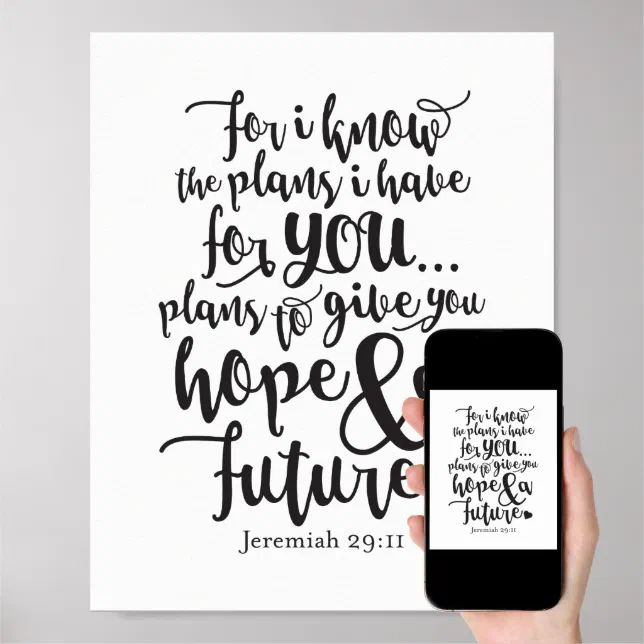 For i know
the plans i have
for YOU...
plans to give you
hope & a
future
Jeremiah 29:11
For i know
the plans i have
for YOU...
plans to give you
hope & a
future
Jeremiah 29:11